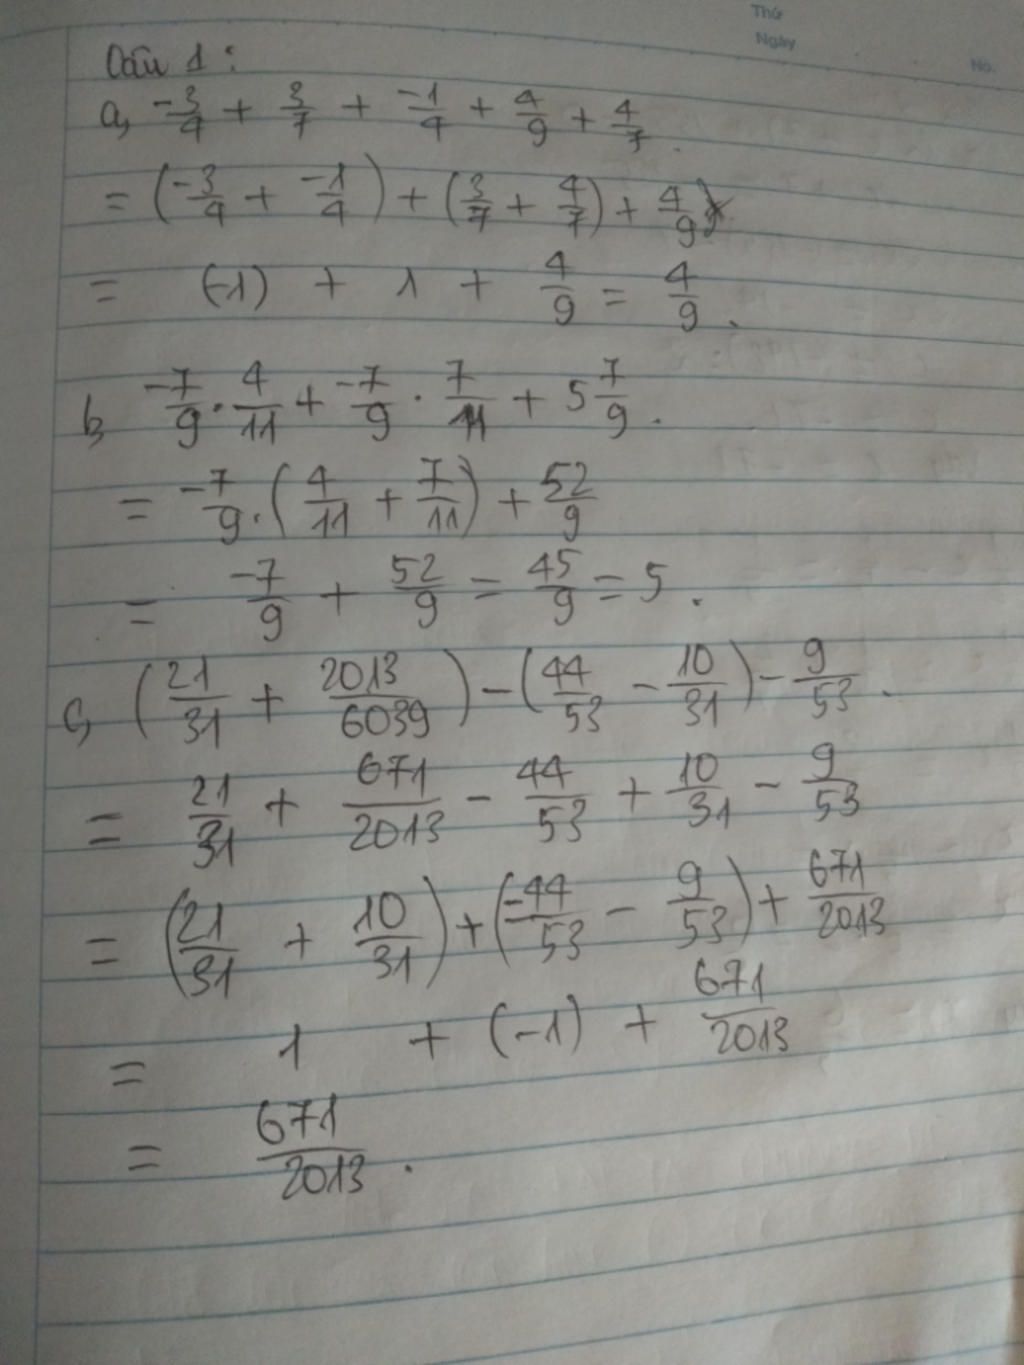 Thứ
Ngày
No.
Câu 1:
a, -3/4 + 3/7 + -1/4 + 4/9 + 4/7.
= (-3/4 + -1/4) + (3/7 + 4/7) + 4/9
= (-1) + 1 + 4/9 = 4/9.
b, -7/9 . 4/11 + -7/9 . 7/11 + 5 7/9.
= -7/9 . (4/11 + 7/11) + 52/9
= -7/9 + 52/9 = 45/9 = 5.
c, (21/31 + 2013/6039) - (44/53 - 10/31) - 9/53.
= 21/31 + 671/2013 - 44/53 + 10/31 - 9/53
= (21/31 + 10/31) + (-44/53 - 9/53) + 671/2013
= 1 + (-1) + 671/2013
= 671/2013.